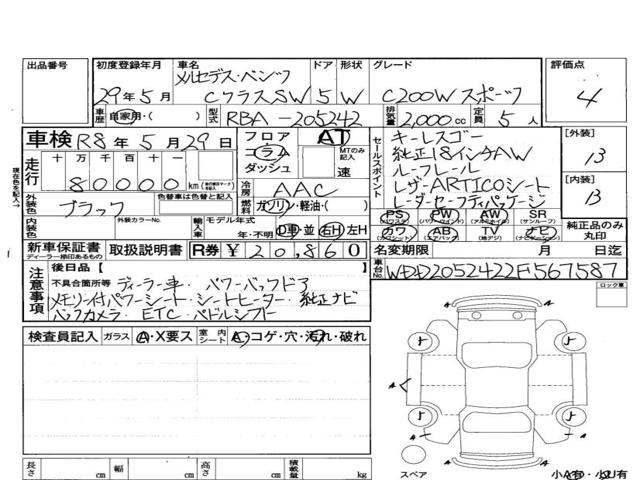 出品番号 初度登録年月 車名 ドア 形状 グレード 評価点
メルセデス・ベンツ
29年5月 CクラスSW 5 W C200W スポーツ 4
車歴 自家用・( ) 型式 RBA-205242 排気量 2,000cc 定員 5人
車検 R8年5月29日 フロア コラム ダッシュ AT MTのみ記入 速
走行 十万千百十一
80000 km
冷房 AAC
外装色 ブラック 色替車は色替と記入 燃料 ガソリン・軽油・( )
内装色 外装カラーNo. 輸入車 モデル年式 年・不明 D車・並 右H 左H
新車保証書 ディーラー捺印あるもの 取扱説明書 R券 ¥20,860
セールスポイント
キーレスゴー
純正18インチAW
ルーフレール
レザーARTICOシート
レーダーセーフティパッケージ
PS (パワステ) PW (パワーウインド) AW (アルミホイル) SR (サンルーフ)
カワ (カワシート) AB (エアバッグ) TV (地デジ) ナビ (ナビゲーション)
純正品のみ丸印
[外装] B
[内装] B
名変期限 月 日迄
車台No. WDD2052422F567587
現在色を記入→
注意事項
後日品【 】
不具合箇所等 ディーラー車・パワーバックドア
メモリー付パワーシート・シートヒーター・純正ナビ
バックカメラ・ETC・パドルシフト
ロック車
検査員記入 ガラス A・X要ス 室内シート A・コゲ・穴・汚れ・破れ
A A A A A
スペア
小A有・小U有
長さ cm 幅 cm 高さ cm 積載量 kg